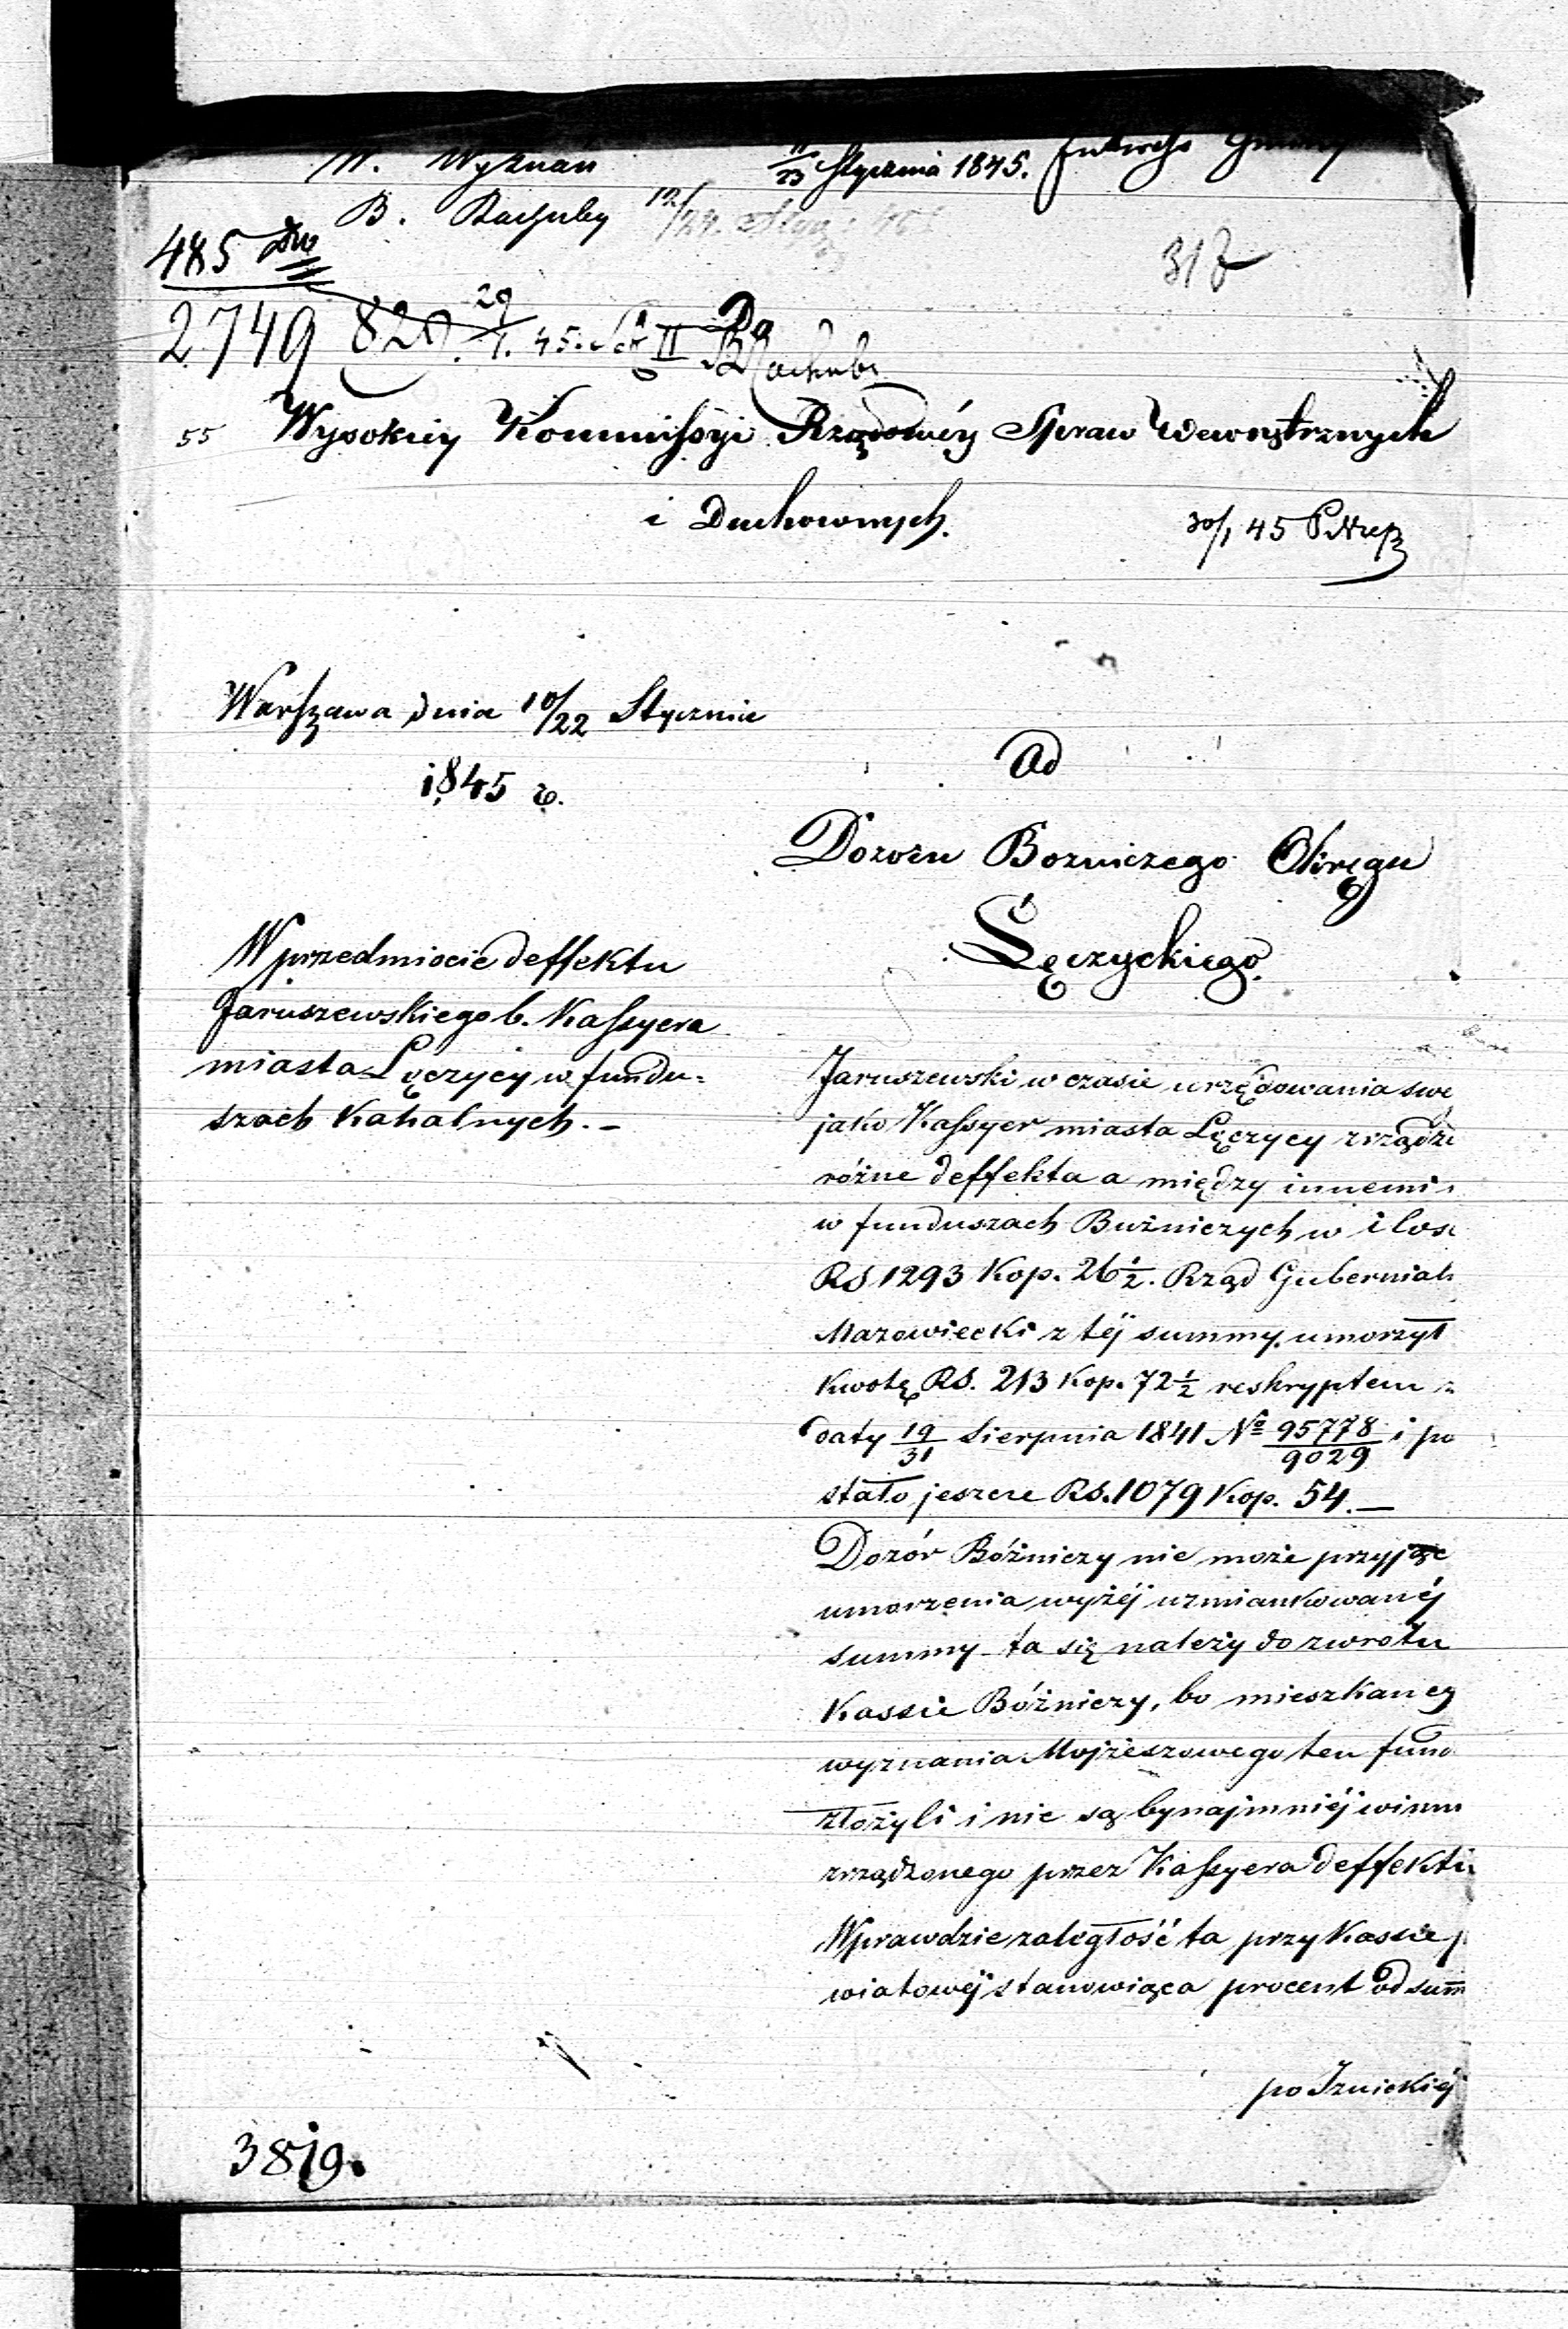 W. Wyznań
11/23 Stycznia 1845.
B. Rachuby 12/24. Stycz
317
485
2749 820. 29/1. 45. Sek II
55 Wysokiey Kommissyi Rządowéy Spraw Wewnętrznych
i Duchownych.
30/1 45
Warszawa dnia 10/22 Stycznia
1845 r.
Od
Dozoru Bozniczego Okręgu
Łęczyckiego.
W przedmiocie deffektu
Jaruszewskiego b. Kassyera
miasta Łęczycy w fundu=
szach Kahalnych. –
Jaruszewski w czasie urzędowania swe
jako Kassyer miasta Łęczycy zrządzi
różne deffekta a między innemi
w funduszach Bużniczych w ilosc
RS 1293 Kop. 26 1/2. Rząd Gubernial
Mazowiecki z téj summy umorzył
Kwotę RS. 213 Kop. 72 1/2 reskryptem z
daty 19/31 Sierpnia 1841 No 95778/9029 i po
stało jeszcze RS. 1079 Kop. 54. —
Dozór Bóżniczy nie może przyjąc
umorzenia wyżéj wzmiankowanéj
summy ta się należy do zwrotu
Kassie Bóżniczy, bo mieszkancy
wyznania Mojżeszowego ten fund
złożyli i nie są bynajmniéj winni
zrządzonego przez Kassyera deffektu
Wprawdzie zaległość ta przy Kassie p
wiatowéj stanowiąca procent od summ
po Iznickiéj
3819.